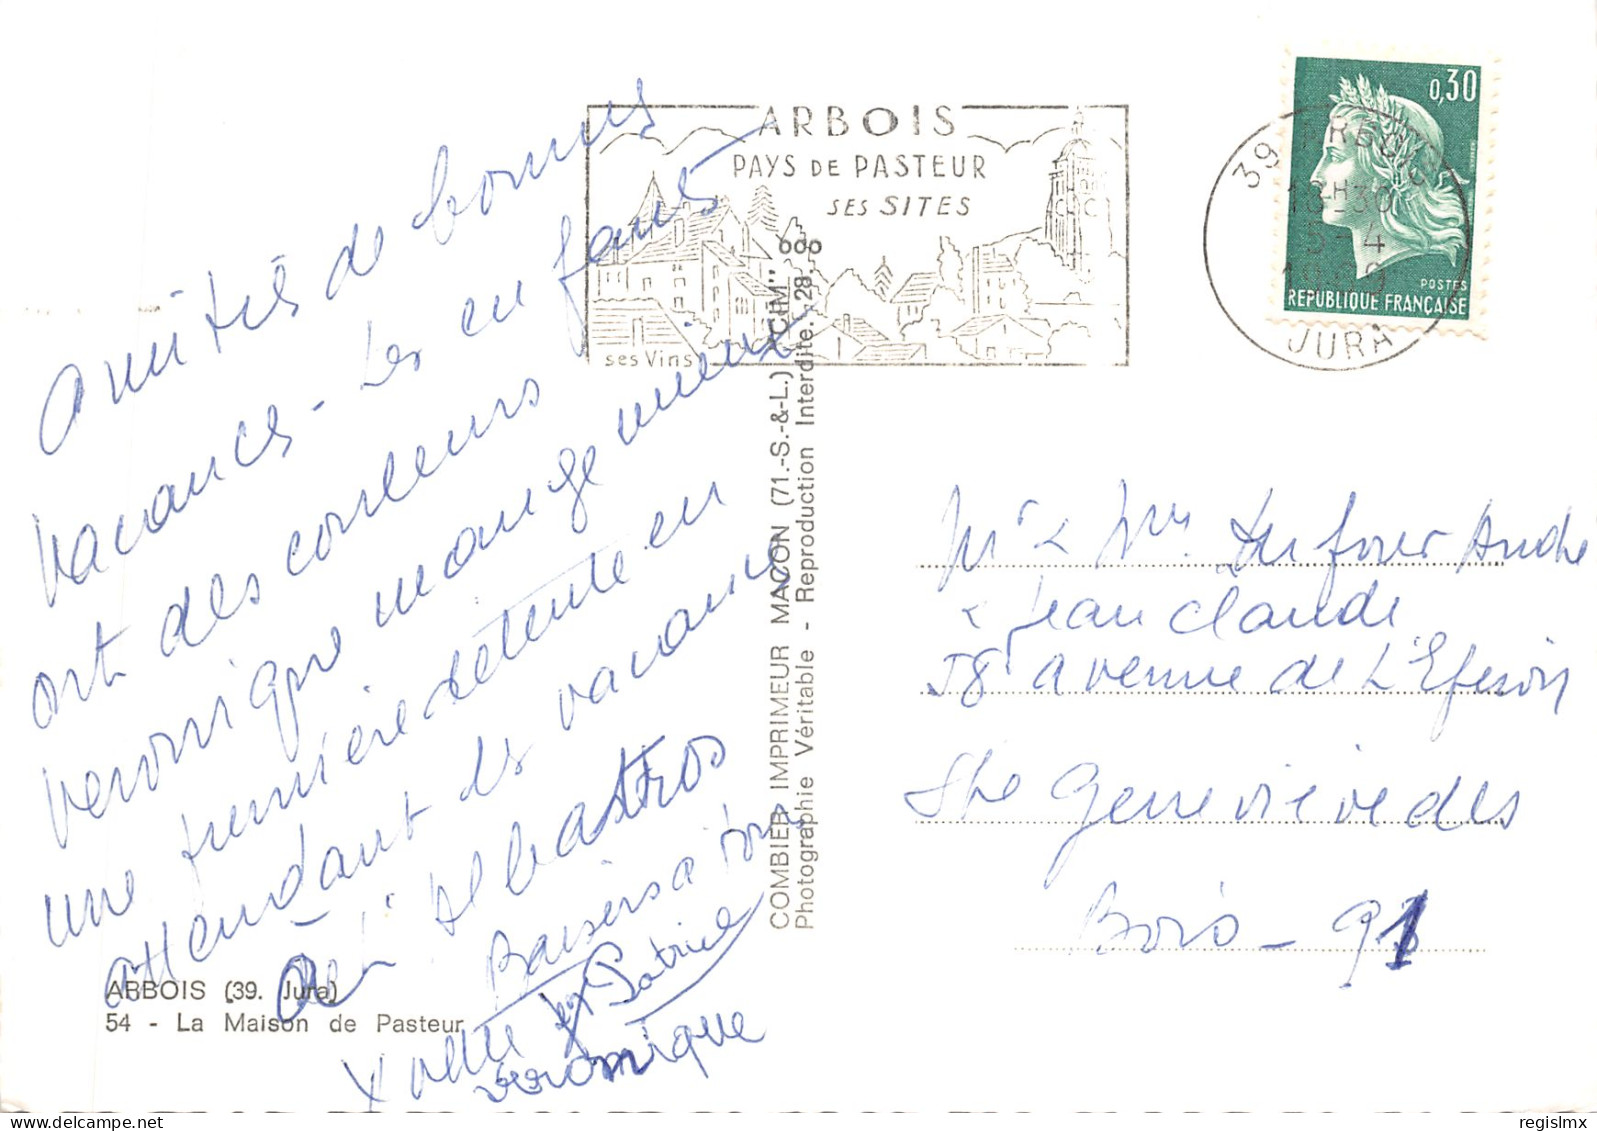 Amitiés de bonnes
vacances - Les enfants
ont des couleurs
Veronique mange mieux
une première détente en
attendant les vacances
de l'Albatros
Baisers a tous
Yvette Patrice
veronique
ARBOIS (39. Jura)
54 - La Maison de Pasteur
COMBIER IMPRIMEUR MACON (71.-S.-&-L.) "CIM"
Photographie Véritable - Reproduction Interdite. 29.
ARBOIS
PAYS DE PASTEUR
SES SITES
ses Vins
39 ARBOIS
18H30
5-4
JURA
0,30
POSTES
REPUBLIQUE FRANÇAISE
Mr & Mme Dufour Andre
& Jean Claude
58 avenue de L'
Ste Genevieve des
Bois - 91
regislmx